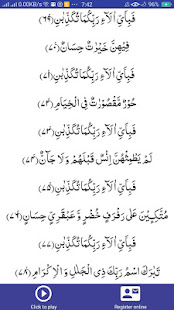 0.00KB/s 7:42
فَبِاَيِّ اٰلَآءِ رَبِّكُمَا تُكَذِّبٰنِ(۶۹)
فِيْهِنَّ خَيْرٰتٌ حِسَانٌ(۷۰)
فَبِاَيِّ اٰلَآءِ رَبِّكُمَا تُكَذِّبٰنِ(۷۱)
حُوْرٌ مَّقْصُوْرٰتٌ فِي الْخِيَامِ(۷۲)
فَبِاَيِّ اٰلَآءِ رَبِّكُمَا تُكَذِّبٰنِ(۷۳)
لَمْ يَطْمِثْهُنَّ اِنْسٌ قَبْلَهُمْ وَ لَا جَآنٌّ(۷۴)
فَبِاَيِّ اٰلَآءِ رَبِّكُمَا تُكَذِّبٰنِ(۷۵)
مُتَّكِـِٕيْنَ عَلٰى رَفْرَفٍ خُضْرٍ وَّ عَبْقَرِيٍّ حِسَانٍ(۷۶)
فَبِاَيِّ اٰلَآءِ رَبِّكُمَا تُكَذِّبٰنِ(۷۷)
تَبٰرَكَ اسْمُ رَبِّكَ ذِي الْجَلٰلِ وَ الْاِكْرَامِ(۷۸)
Click to play Register online